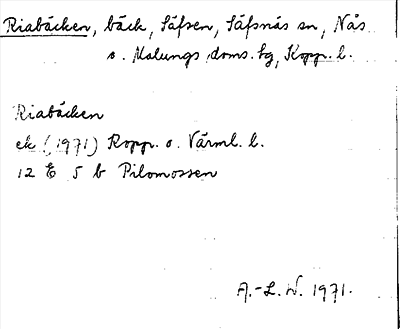 Riabäcken, bäck, Säfsen, Säfsnäs sn, Nås
o. Malungs doms. hg, Kopp. l.
Riabäcken
ek (1971) Kopp. o. Värml. l.
12 E 5 b Pilomossen
A.-L. W. 1971.